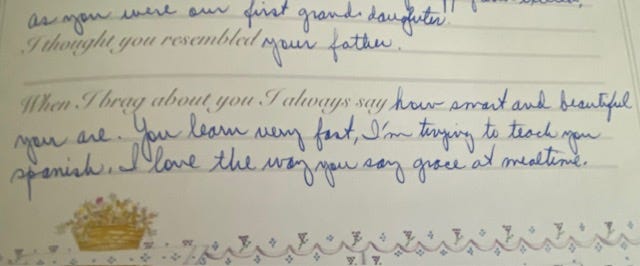 as you were our first grand-daughter.
I thought you resembled your father.
When I brag about you I always say how smart and beautiful
you are. You learn very fast, I'm trying to teach you
spanish. I love the way you say grace at mealtime.